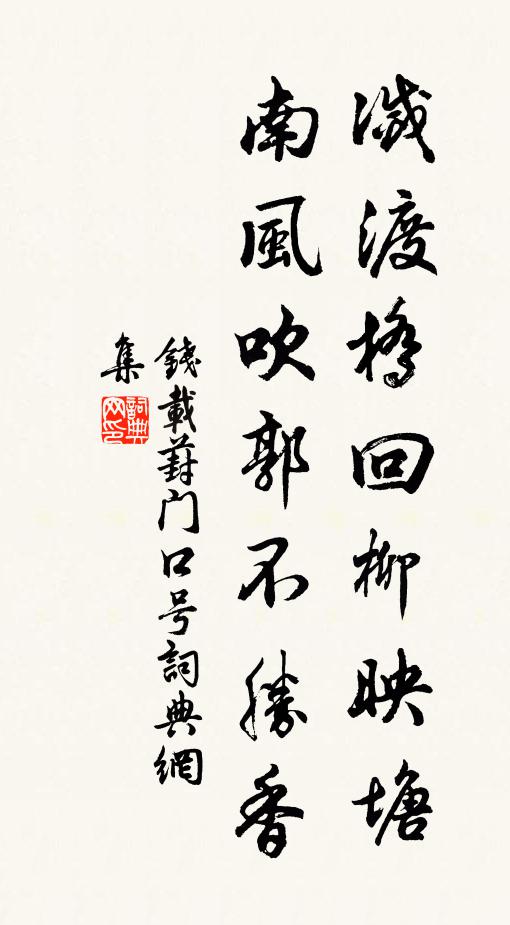 滅渡橋回柳映塘
南風吹郭不勝香
錢載葑门口号詞典網
集
詞典
网印